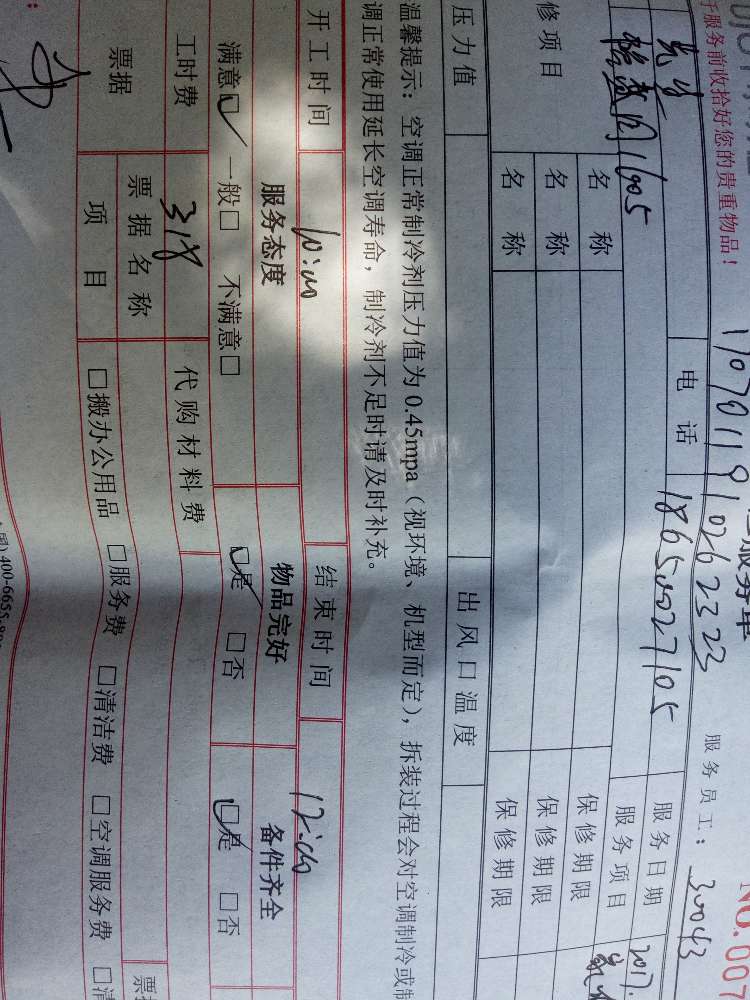 服务单
NO.007
于服务前收拾好您的贵重物品！
1707011910262323
服务员工：30043
先生
电话 18650027105
服务日期 2017.
1605
服务项目
修项目
名称
保修期限
名称
保修期限
名称
保修期限
压力值
出风口温度
温馨提示：空调正常制冷剂压力值为0.45mpa（视环境、机型而定），拆装过程会对空调制冷或制
调正常使用延长空调寿命，制冷剂不足时请及时补充。
开工时间 10:00 结束时间 12:00
服务态度 物品完好 备件齐全
满意☑ 一般□ 不满意□ ☑是 □否 ☑是 □否
工时费 318 代购材料费
票据
票据名称
票据
项目
□搬办公用品 □服务费 □清洁费 □空调服务费 □清
国) 400-6655-